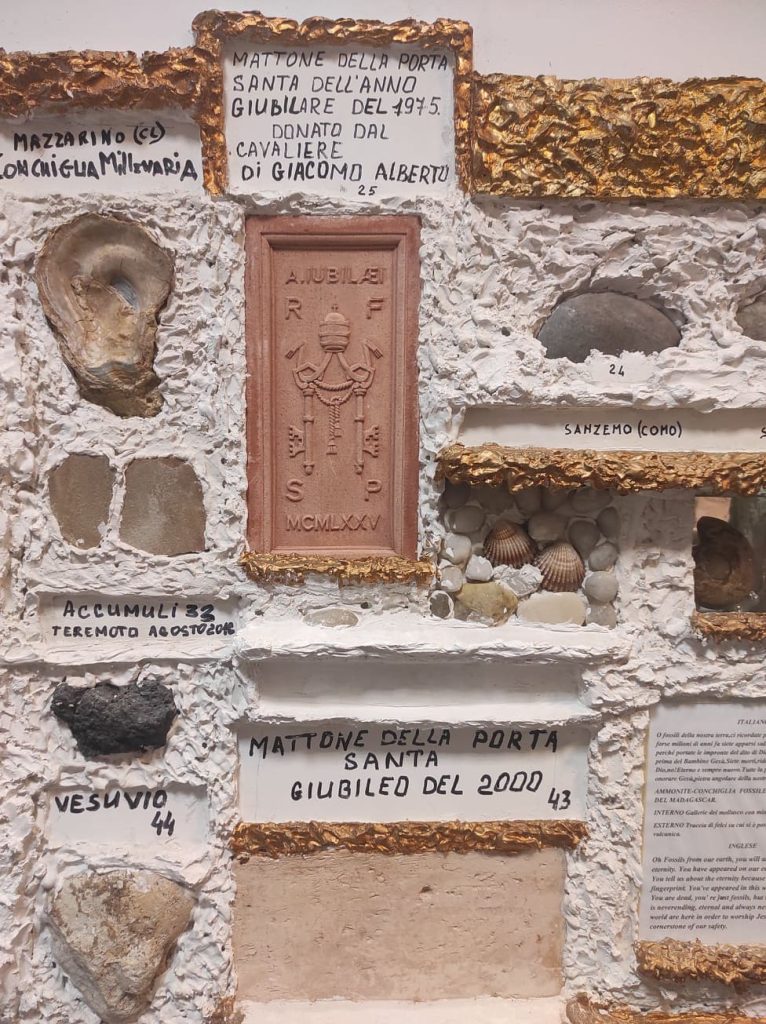 MATTONE DELLA PORTA
SANTA DELL'ANNO
GIUBILARE DEL 1975.
DONATO DAL
CAVALIERE
DI GIACOMO ALBERTO
25
MAZZARINO (CL)
CONCHIGLIA MILLENARIA
A.IUBILÆI
R F
S P
MCMLXXV
24
SANZEMO (COMO)
ACCUMULI 33
TEREMOTO AGOSTO 2016
MATTONE DELLA PORTA
SANTA
GIUBILEO DEL 2000
43
VESUVIO
44
ITALIANO
O fossili della nostra terra,ci ricordate
forse milioni di anni fa siete apparsi
perché portate le impronte del dito di
prima del Bambino Gesù.Siete morti,
Dio,nell'Eterno e sempre nuovo.Tutto in
onorare Gesù,pietra angolare della
AMMONITE-CONCHIGLIA FOSSILE
DEL MADAGASCAR.
INTERNO Gallerie del mollusco con
ESTERNO Traccia di felci su cui si è
vulcanica.
INGLESE
Oh Fossils from our earth, you will
eternity. You have appeared on our
You tell us about the eternity because
fingerprint. You've appeared in this
You are dead, you' re just fossils, but
is neverending, eternal and always
world are here in order to worship
cornerstone of our safety.